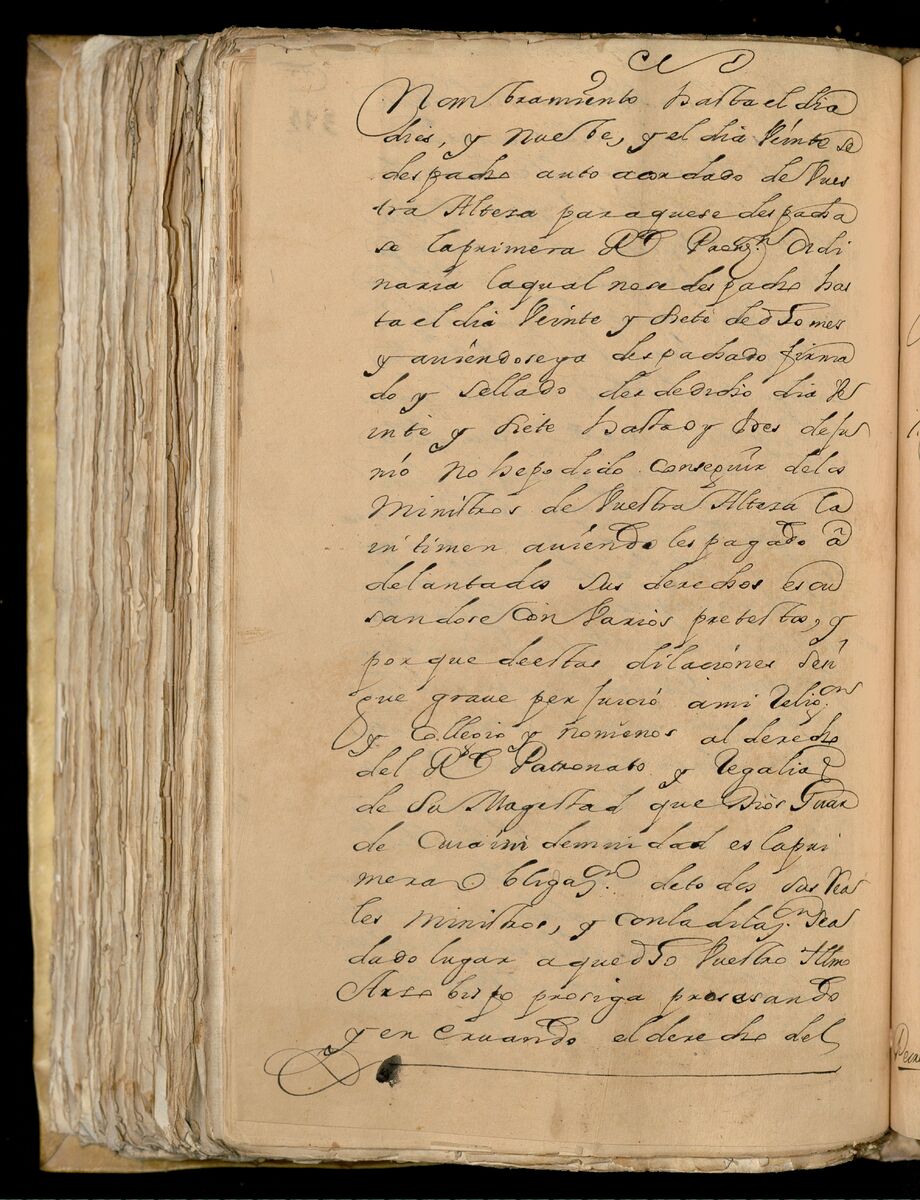 Nombramiento hasta el dia
dies, y nuebe, y el dia Veinte se
despacho auto acordado de Vues
tra Alteza para que se despacha
se la primera Rl Ordi
naria la qual no se despacho has
ta el dia Veinte y siete de dho mes
y auiendose ya despachado firma
do y sellado desde dicho dia Ve
inte y siete hasta oy tres de Ju
nio no he podido conseguir de los
Ministros de Vuestra Alteza la
intimen auiendoles pagado a
delantados sus derechos escu
sandose con Varios pretextos, y
porque de estas dilaciones se si
gue graue perjuicio a mi Relig.on
y Collegio y no menos al derecho
del Rl Patronato y Regalia
de Su Magestad que Dios Guar
de Cuia indemnidad es la pri
mera obligas.on de todos sus Rea
les Ministros, y con la dilas.on se a
dado lugar a que dho Vuestro Illmo
Arzobispo prosiga procesando
y enervando el derecho del